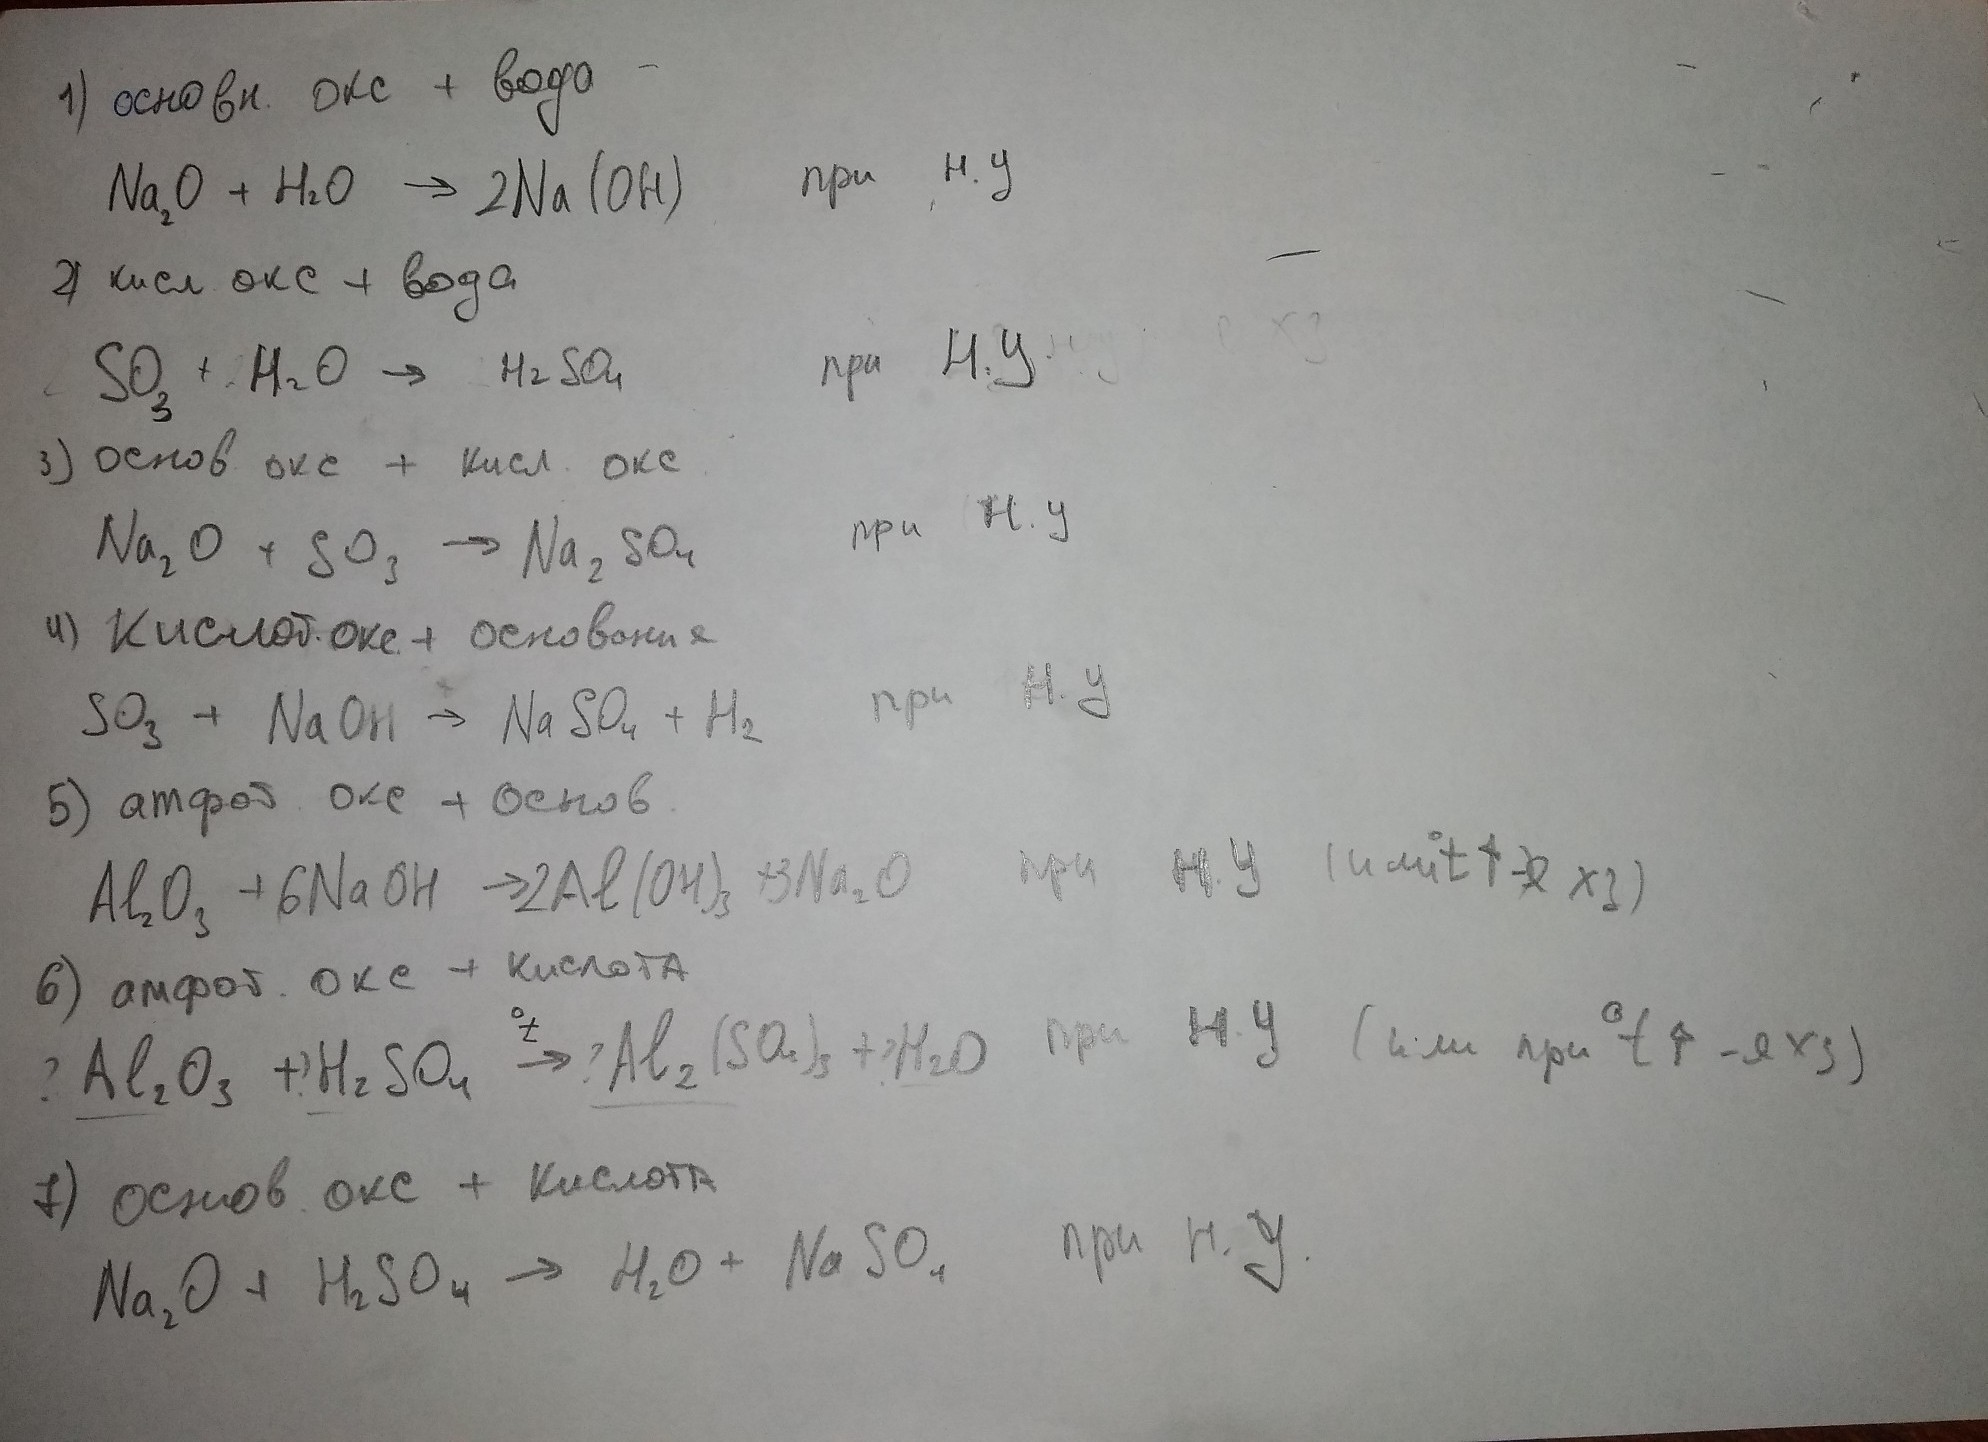 1) основн. окс + вода
Na₂O + H₂O → 2Na(OH) при Н.У
2) кисл окс + вода
SO₃ + H₂O → H₂SO₄ при Н.У.
3) основ окс + кисл. окс
Na₂O + SO₃ → Na₂SO₄ при Н.У
4) Кислот. окс. + основания
SO₃ + NaOH → NaSO₄ + H₂ при Н.У
5) амфот. окс + основ.
Al₂O₃ + 6NaOH → 2Al(OH)₃ + 3Na₂O при Н.У (или t° ↑ - я хз)
6) амфот. окс + кислота
? Al₂O₃ + ? H₂SO₄ →°t ? Al₂(SO₄)₃ + ? H₂O при Н.У (или при °t ↑ - я хз)
7) основ. окс + кислота
Na₂O + H₂SO₄ → H₂O + NaSO₄ при Н.У.